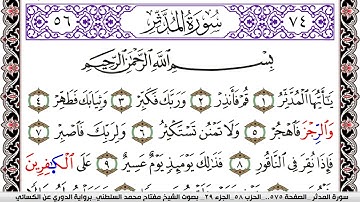 ٧٤ سُورَةُ الْمُدَّثِّر ٥٦
بِسْمِ اللَّهِ الرَّحْمَٰنِ الرَّحِيمِ
يَٰٓأَيُّهَا الْمُدَّثِّرُ ١ قُمْ فَأَنذِرْ ٢ وَرَبَّكَ فَكَبِّرْ ٣ وَثِيَابَكَ فَطَهِّرْ ٤
وَالرِّجْزَ فَاهْجُرْ ٥ وَلَا تَمْنُن تَسْتَكْثِرُ ٦ وَلِرَبِّكَ فَاصْبِرْ ٧
فَإِذَا نُقِرَ فِي النَّاقُورِ ٨ فَذَٰلِكَ يَوْمَئِذٍ يَوْمٌ عَسِيرٌ ٩ عَلَى الْكَٰفِرِينَ
سورة المدثر الصفحة ٥٧٥... الحزب ٥٨ الجزء ٢٩ بصوت الشيخ مفتاح محمد السلطني برواية الدوري عن الكسائي